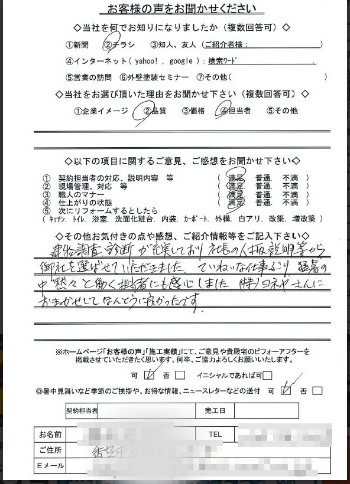 お客様の声をお聞かせください
◇当社を何でお知りになりましたか（複数回答可）◇
①新聞 ②チラシ ③知人、友人（ご紹介者様： ）
④インターネット（yahoo!．google）：検索ワード
⑤営業の訪問 ⑥外壁塗装セミナー ⑦その他（ ）
◇当社をお選び頂いた理由をお聞かせ下さい（複数回答可）◇
①企業イメージ ②品質 ③価格 ④担当者 ⑤その他
◇以下の項目に関するご意見、ご感想をお聞かせ下さい◇
1 契約担当者の対応、説明内容 等 （満足 普通 不満）
2 現場管理、対応 等 （満足 普通 不満）
3 職人のマナー （満足 普通 不満）
4 仕上がりの状態 （満足 普通 不満）
5 次にリフォームするとしたら
（キッチン、トイレ 浴室、洗面化粧台、内装、カーポート、外構、白アリ、改築、増改築）
◇その他お気付きの点や感想、ご紹介情報等をご記入下さい◇
建物調査診断が充実しており 社長の 説明等から
御社を選ばせていただきました。ていねいな仕事ぶり 猛暑の
中 黙々と働く担当者にも感心しました
おまかせして なんとうに良かったです。
※ホームページ「お客様の声」「施工実績」にて、ご意見や貴殿宅のビフォーアフターを
掲載させていただきたく思います。何卒、ご協力よろしくお願いいたします。
可 否 イニシャルであれば可
◎暑中見舞いなど季節のご挨拶や、お得な情報、ニュースレターなどの送付 可 否
契約担当者 完工日
お名前 TEL
ご住所
Ｅメール